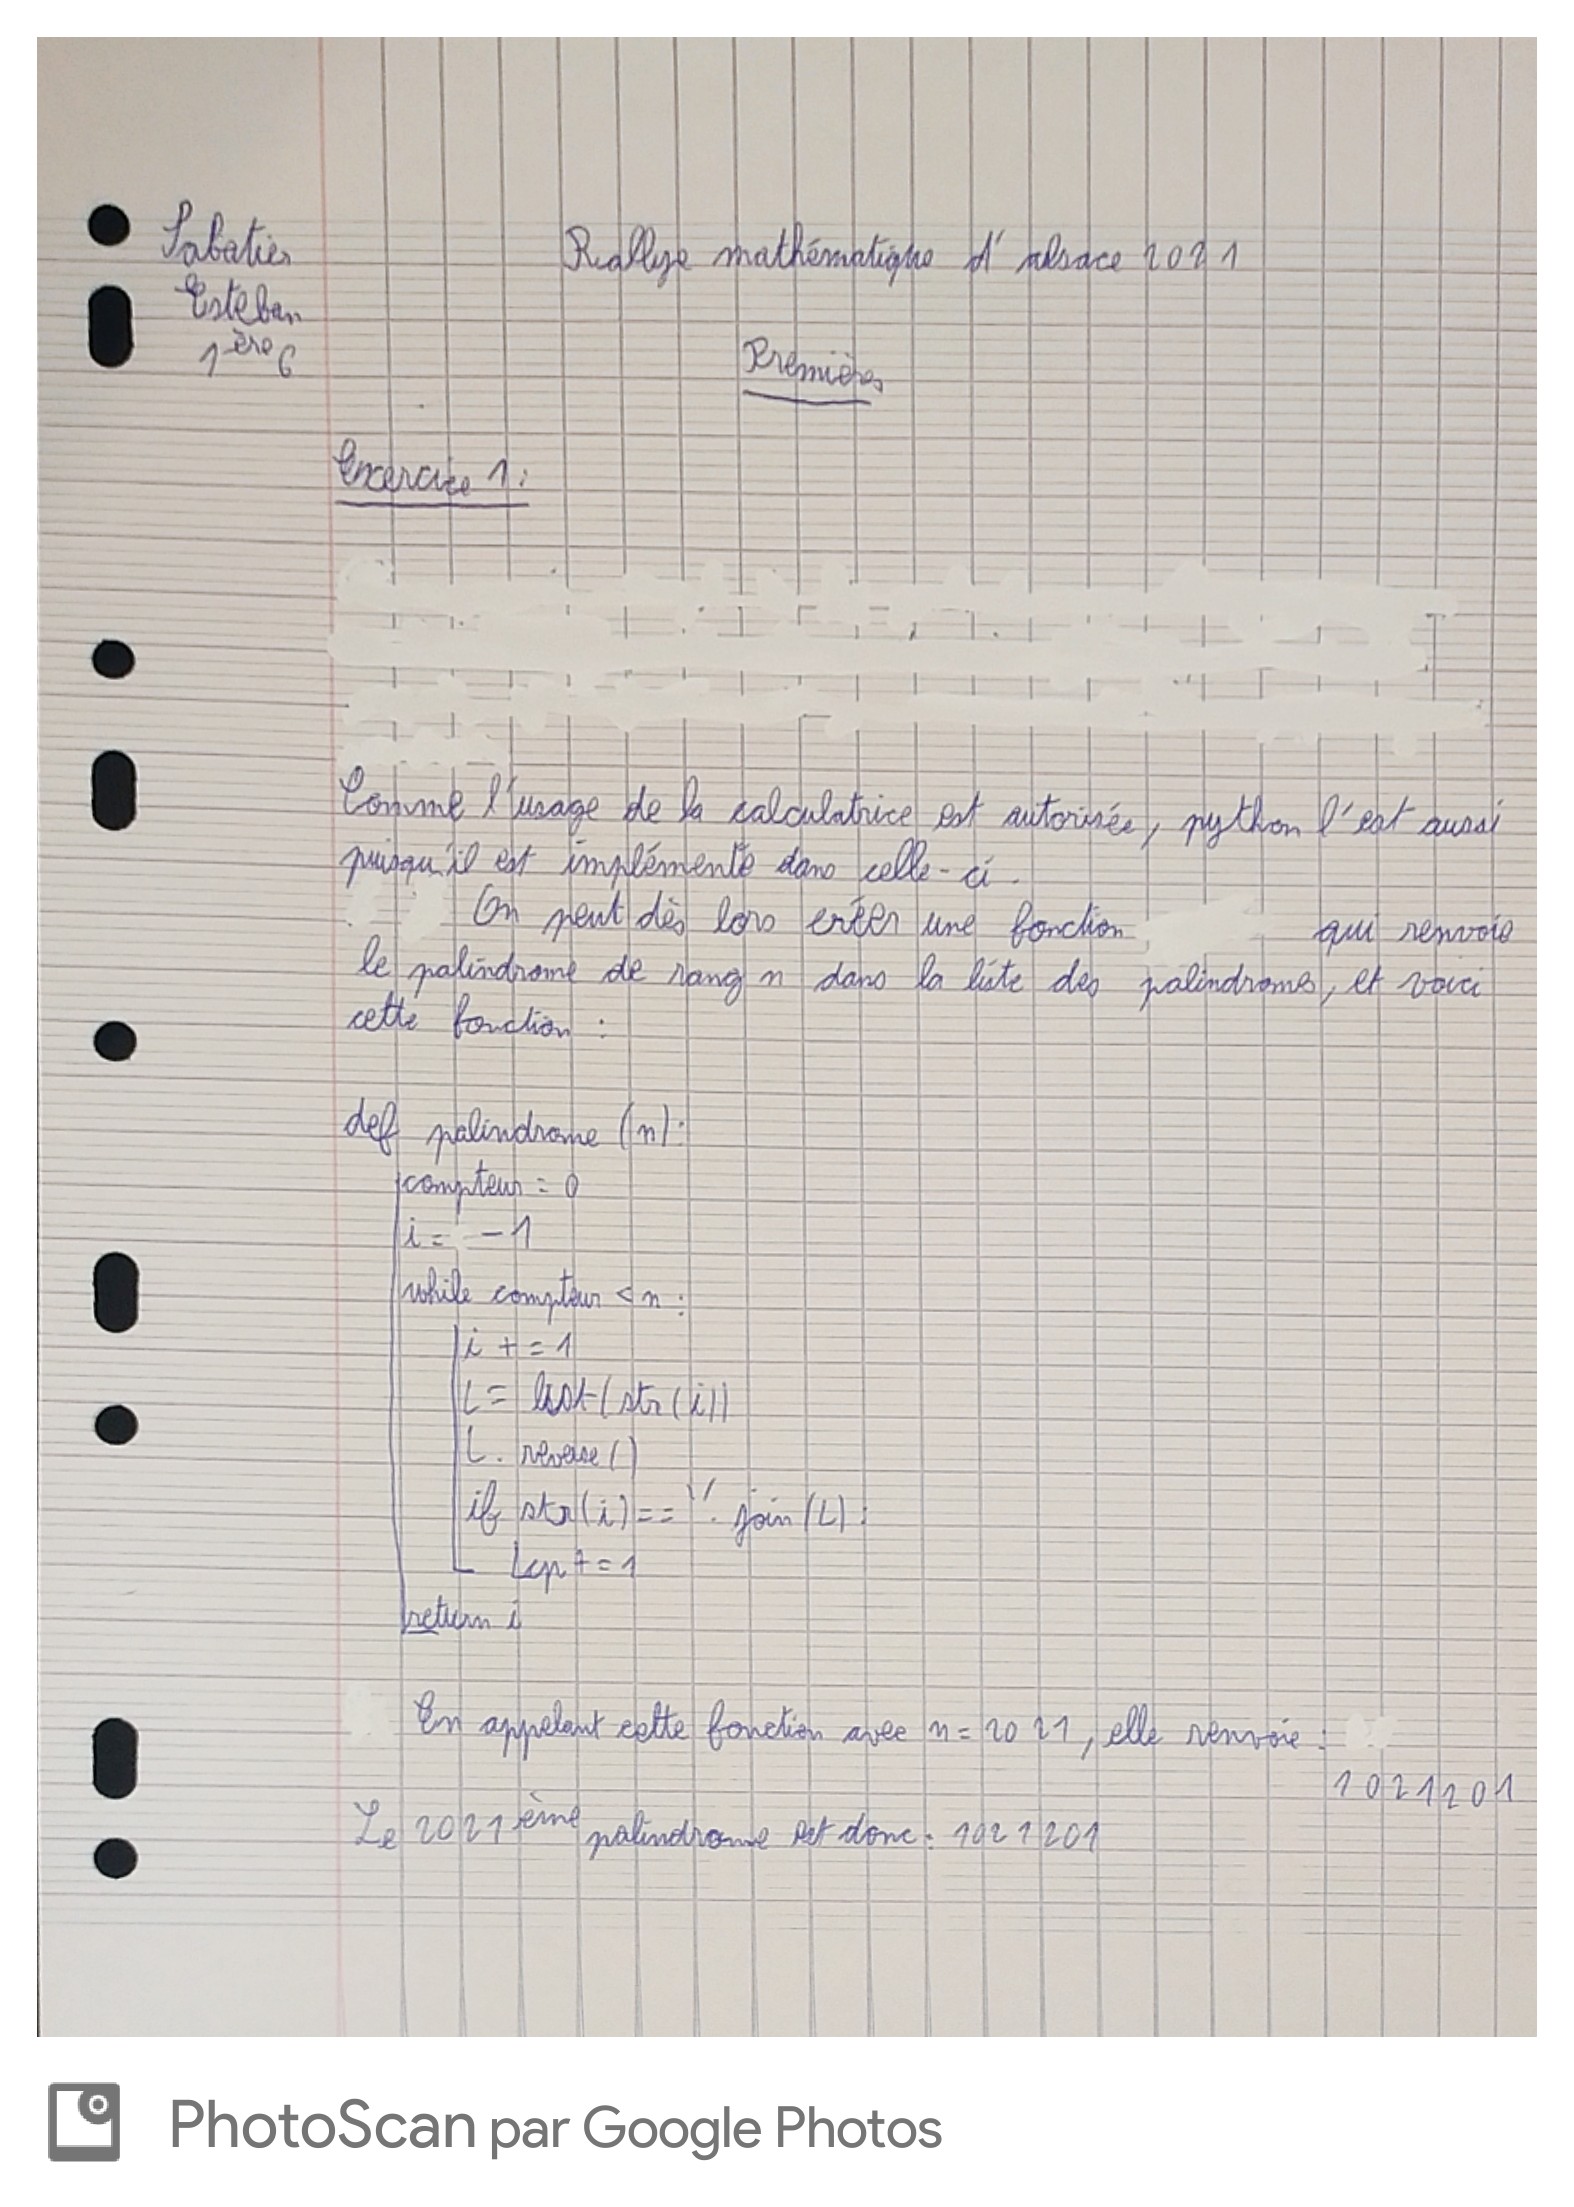 Sabatier
Rallye mathématique d'alsace 2021
Esteban
1ère 6
Premières
Excercice 1 :
Comme l'usage de la calculatrice est autorisée, python l'est aussi
puisqu'il est implémenté dans celle-ci.
On peut dès lors créer une fonction qui renvoie
le palindrome de rang n dans la liste des palindromes, et voici
cette fonction :
def palindrome (n):
compteur = 0
i = -1
while compteur < n :
i += 1
L = list(str(i))
L. reverse()
if str(i) == ''. join(L) :
cp += 1
return i
En appelant cette fonction avec n = 2021, elle renvoie :
1021201
Le 2021ème palindrome est donc : 1021201
PhotoScan par Google Photos